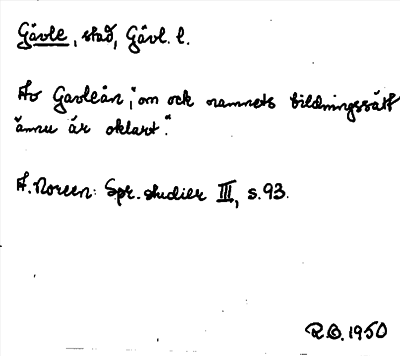 Gävle, stad, Gävl. l.
Av Gavleån, "om ock namnets bildningssätt
ännu är oklart".
A. Noreen: Spr. studier III, s. 93.
R.O. 1950